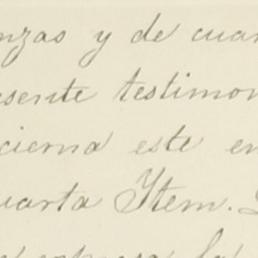 nzas y de cuan
esente testimon
cierna este en
uarta Ytem.
la